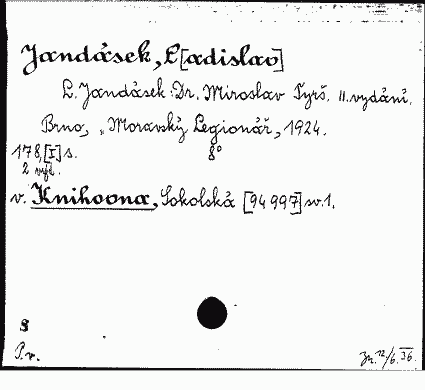 Jandásek, L[adislav]
L. Jandásek: Dr. Miroslav Tyrš. II. vydání.
Brno, „Moravský Legionář", 1924.
178, [I] s. 8°
2 výt.
v. Knihovna, Sokolská [94997] sv. 1.
8
P. v. 12/6. 36.